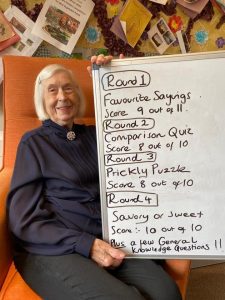 Round 1
Favourite Sayings
Score 9 out of 11.
Round 2
Comparison Quiz
Score 8 out of 10
Round 3
Prickly Puzzle
Score 8 out of 10
Round 4
Savory or Sweet
Score:- 10 out of 10
Plus a few General
Knowledge Questions !!